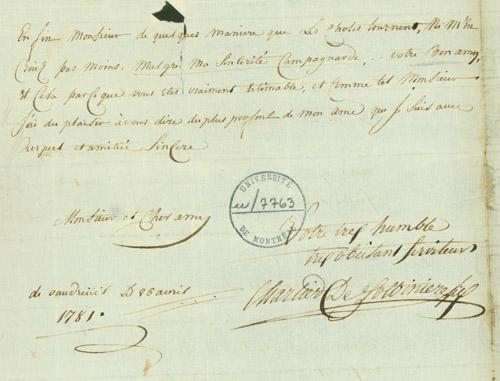 En fin Monsieur de quelques maniere que Les choses tournent, Ne M'en
Croiez pas moins, Malgré Ma Sincerité Campagnarde, votre Bon amy,
Et Cela parceque vous etes vraiment Estimable, et Comme tel Monsieur
J'ai du plaisir a vous dire du plus profont de mon ame que je suis avec
Respect et amitiée Sincere
Monsieur et Cher amy
UNIVERSITÉ
u/7763
DE MONTRÉAL
Votre tres humble
tres obeistant serviteur
de vaudreüil D 25 avril
1781.
Chartier De Lotbiniere